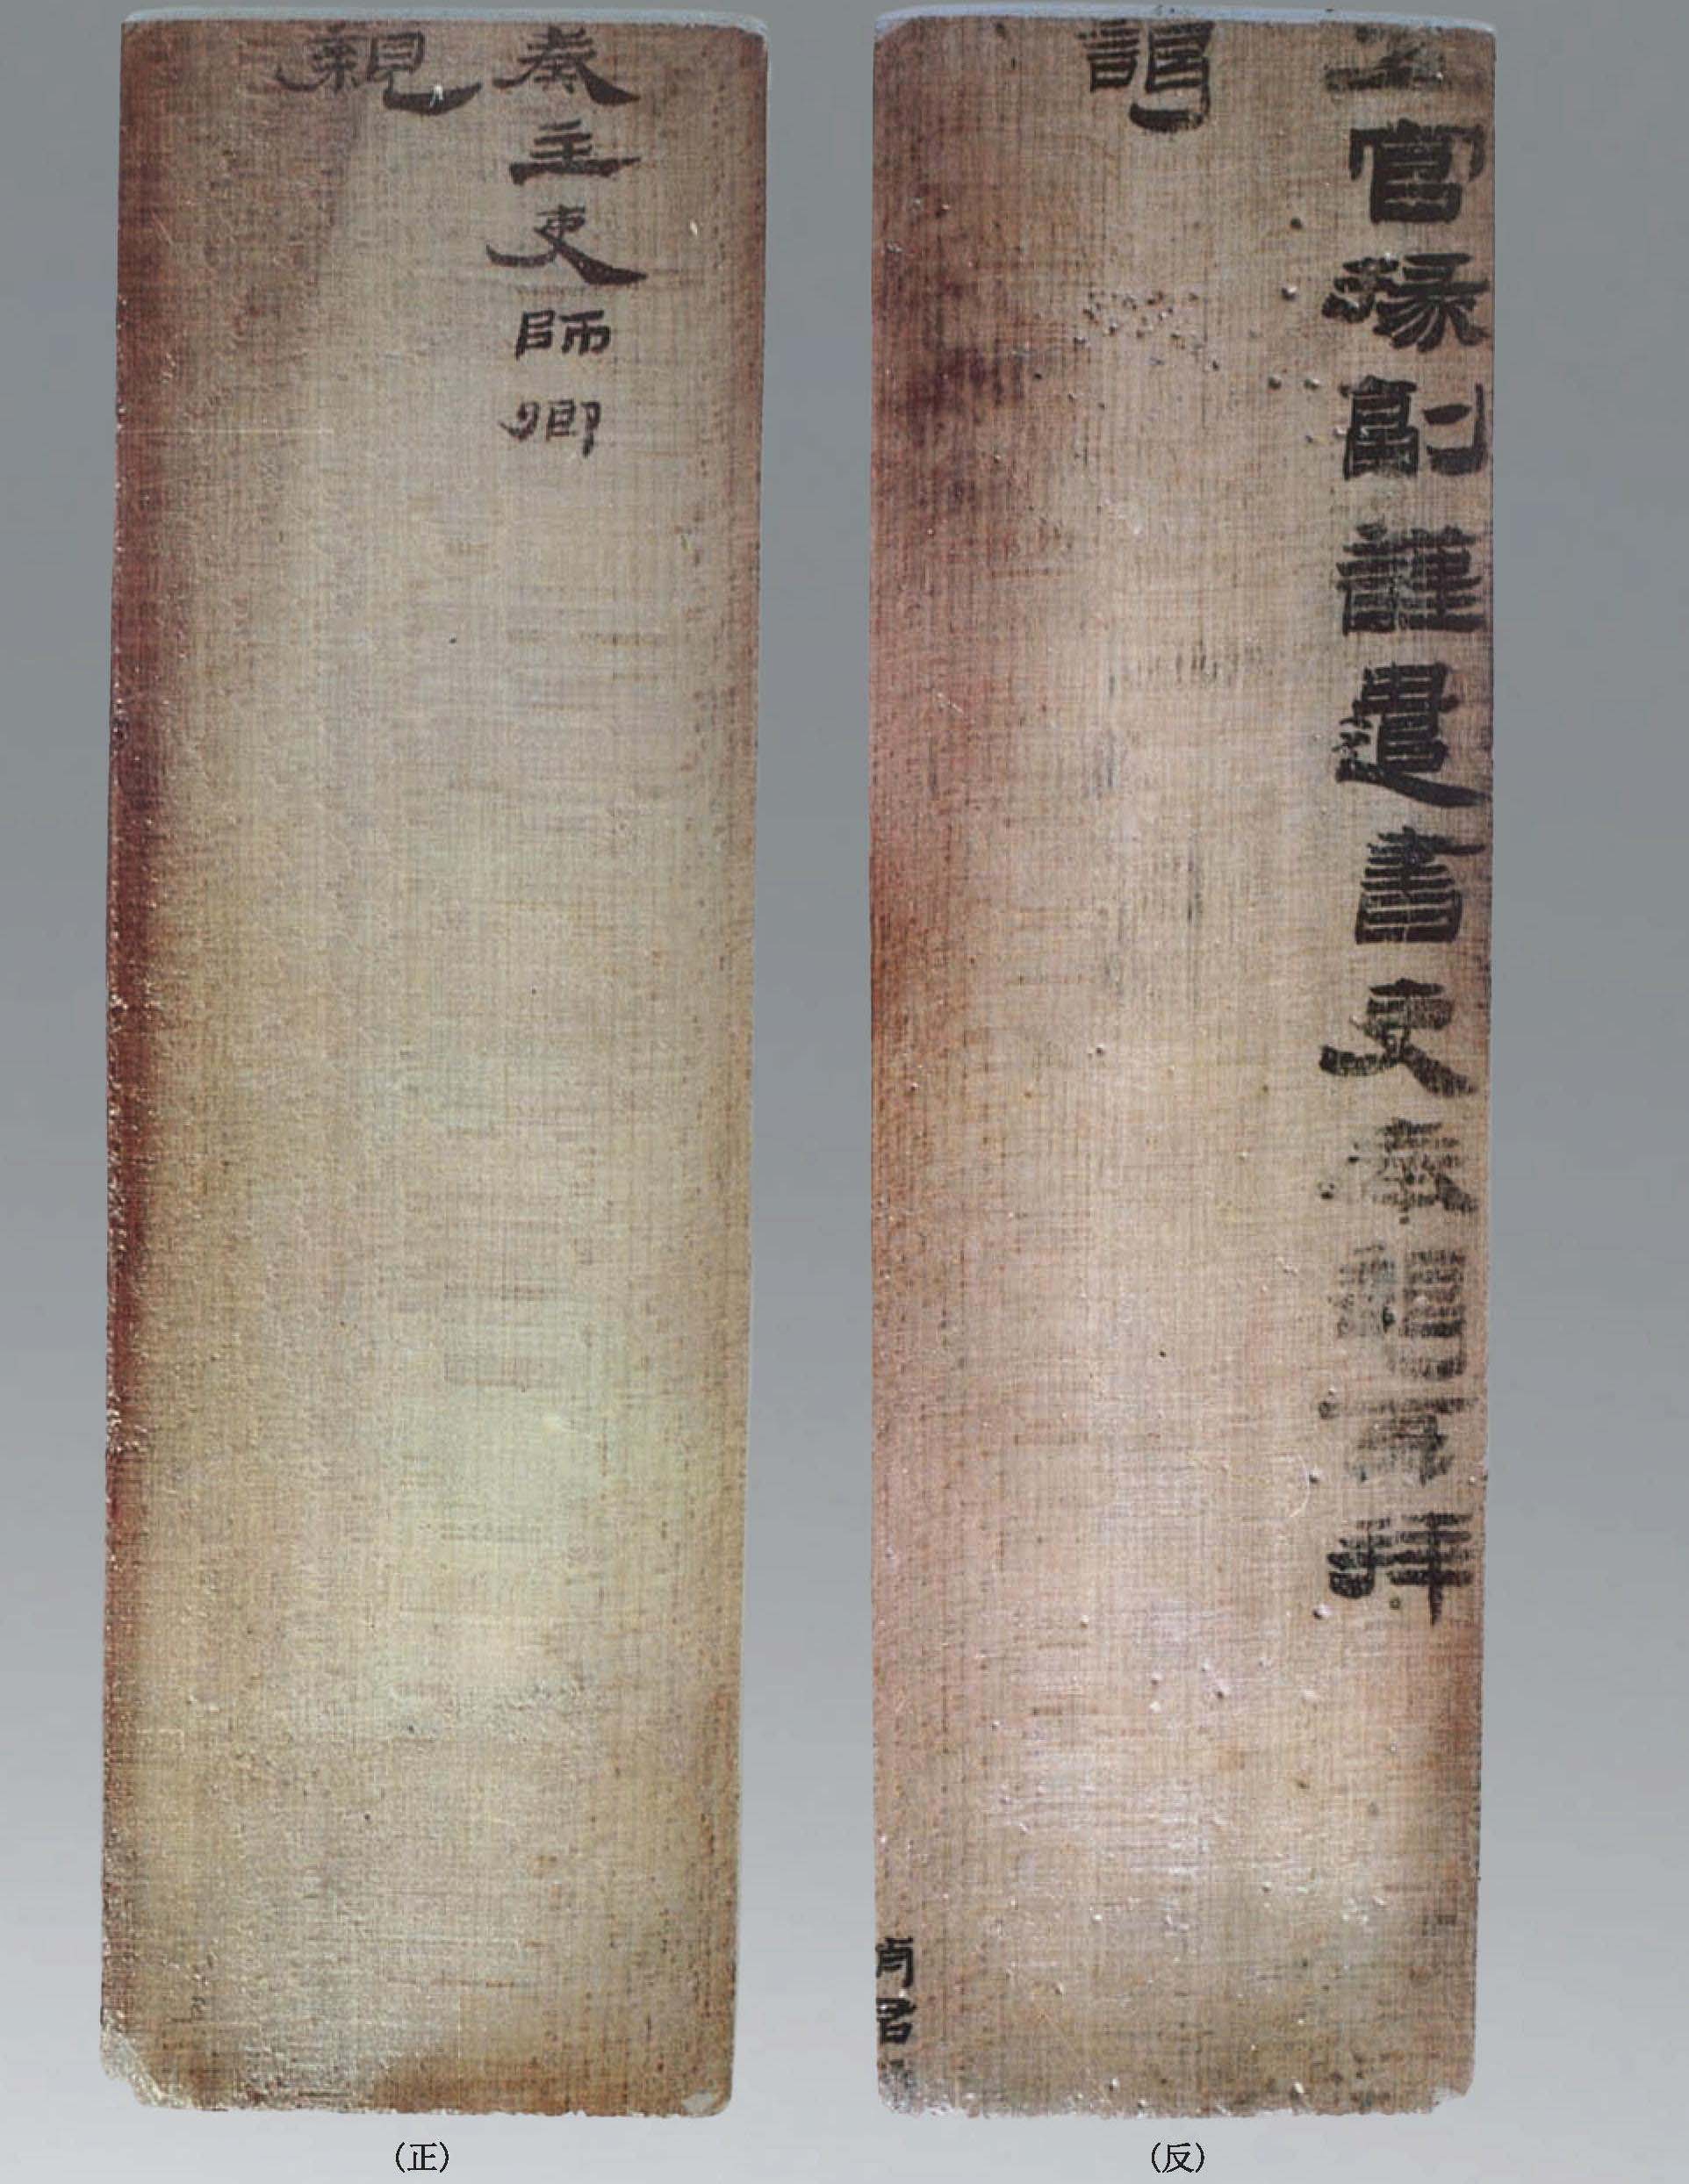 奏主吏師卿
親
五官掾副謹遣書吏奉謁再拜
謁
趙君
(正)
(反)